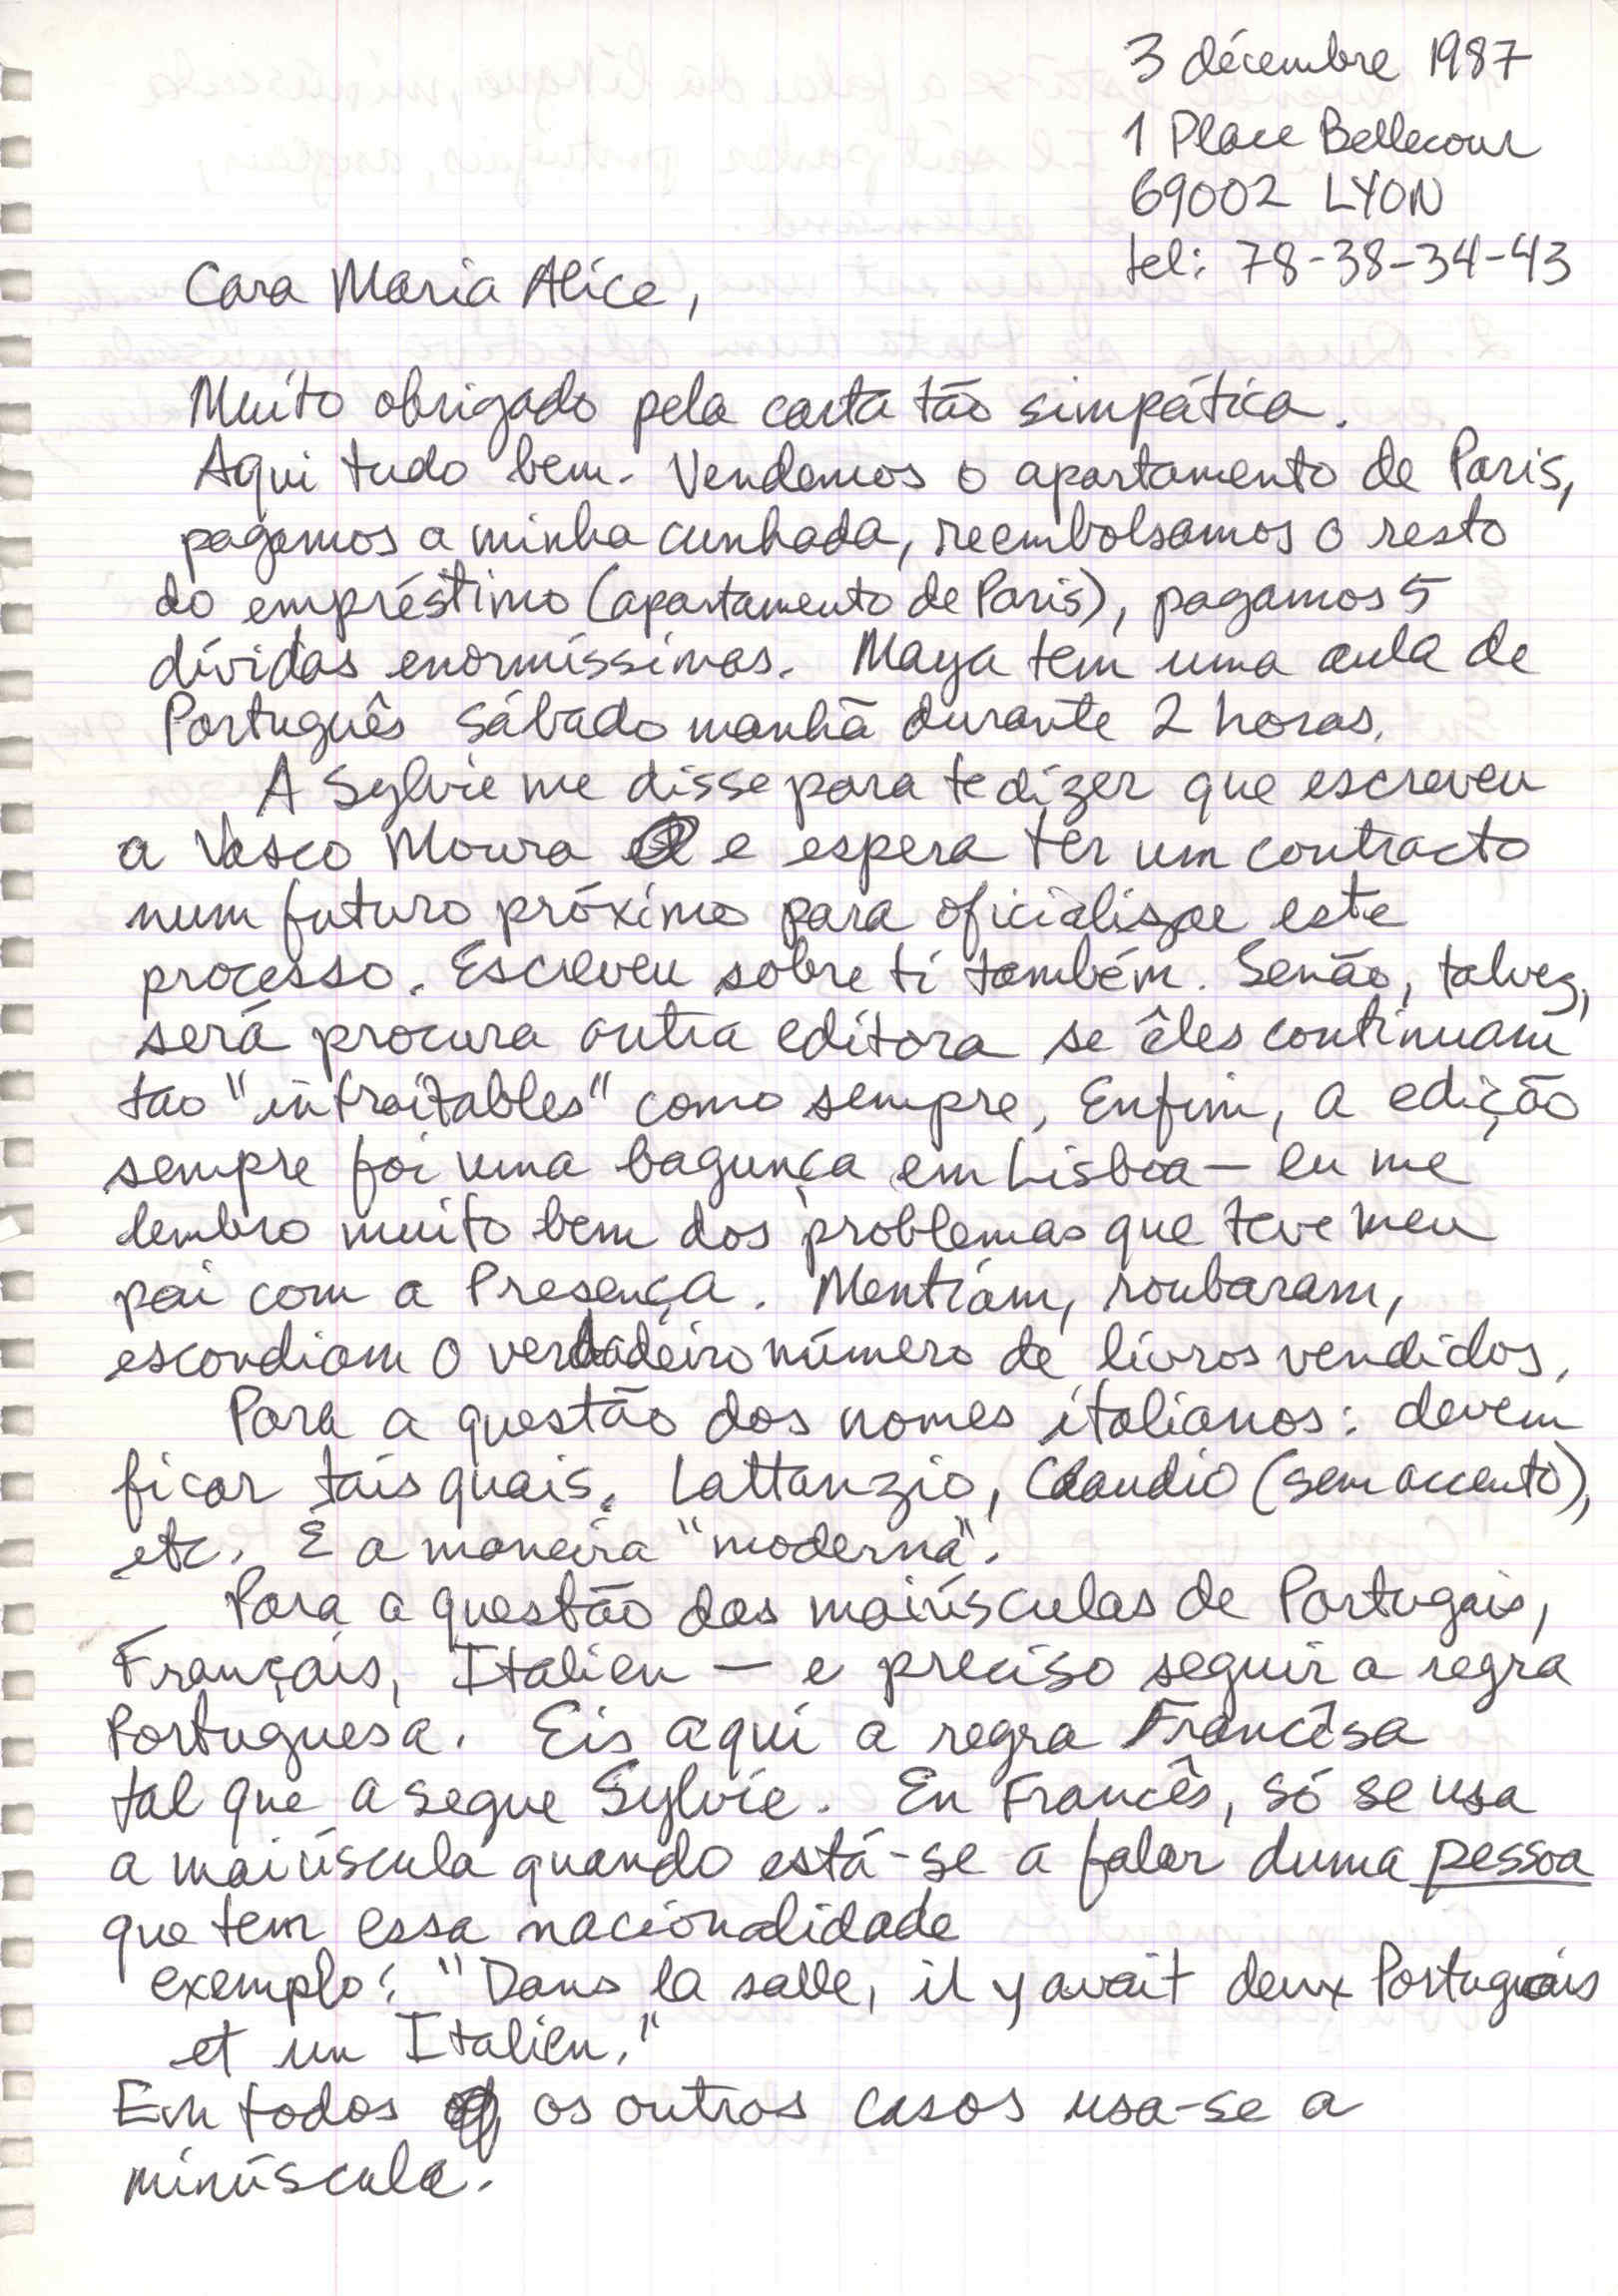 3 décembre 1987
1 Place Bellecour
69002 LYON
tel: 78-38-34-43
Cara Maria Alice,
Muito obrigado pela carta tão simpática.
Aqui tudo bem. Vendemos o apartamento de Paris,
pagamos a minha cunhada, reembolsamos o resto
do empréstimo (apartamento de Paris), pagamos 5
dívidas enormíssimas. Maya tem uma aula de
Português Sábado manhã durante 2 horas.
A Sylvie me disse para te dizer que escreveu
a Vasco Moura e espera ter um contracto
num futuro próximo para oficialisar este
processo. Escreveu sobre ti também. Senão, talvez,
será procura outra editora se êles continuam
tao "intraitables" como sempre. Enfim, a edição
sempre foi uma bagunça em Lisboa — eu me
lembro muito bem dos problemas que teve meu
pai com a Presença. Mentiam, roubaram,
escondiam o verdadeiro número de livros vendidos.
Para a questão dos nomes italianos: devem
ficar tais quais. Lattanzio, Claudio (sem accento),
etc. É a maneira "moderna".
Para a questão das maiúsculas de Portugais,
Français, Italien — e preciso seguir a regra
Portuguesa. Eis aqui a regra Francêsa
tal que a segue Sylvie. En Francês, só se usa
a maiúscula quando está-se a falar duma pessoa
que tem essa nacionalidade
exemplo: "Dans la salle, il y avait deux Portugais
et un Italien."
Em todos os outros casos usa-se a
minúscula.